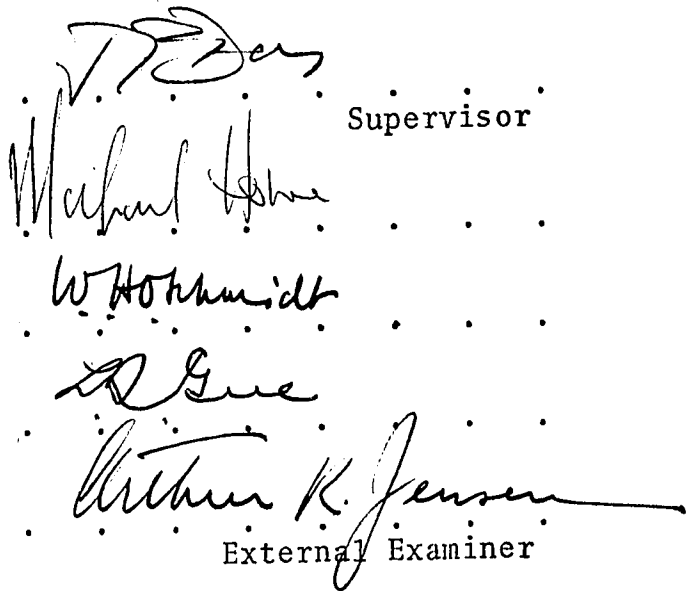 Supervisor
Michael
W H O Schmidt
L R Gue
Arthur R. Jensen
External Examiner